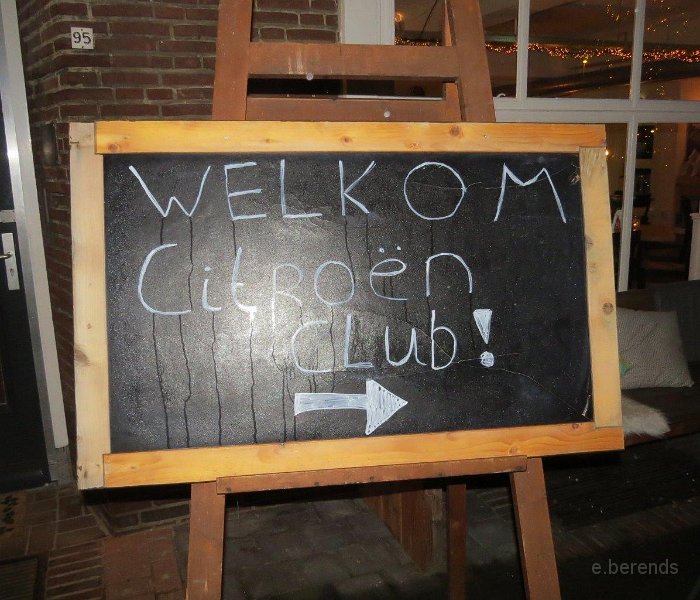 95
WELKOM
Citroën
CLub!
e.berends